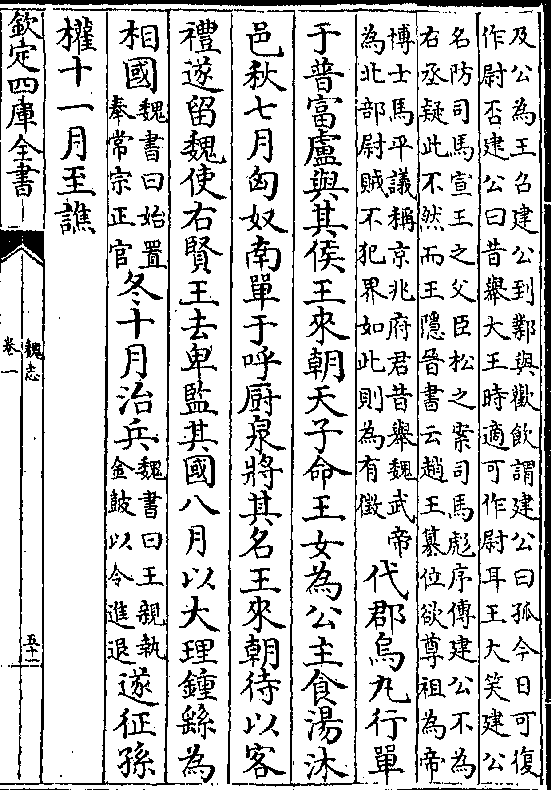 及公為王召建公到鄴與歡飲謂建公曰孤今日可復
作尉否建公曰昔舉大王時適可作尉耳王大笑建公
名防司馬宣王之父臣松之案司馬彪序傳建公不為
右丞疑此不然而王隱晉書云趙王篡位欲尊祖為帝
博士馬平議稱京兆府君昔舉魏武帝
為北部尉賊不犯界如此則為有徵
代郡烏丸行單
于普富盧與其侯王來朝天子命王女為公主食湯沐
邑秋七月匈奴南單于呼廚泉將其名王來朝待以客
禮遂留魏使右賢王去卑監其國八月以大理鐘繇為
相國
魏書曰始置
奉常宗正官
冬十月治兵
魏書曰王親執
金鼓以令進退
遂征孫
權十一月至譙
欽定四庫全書
魏志
卷一